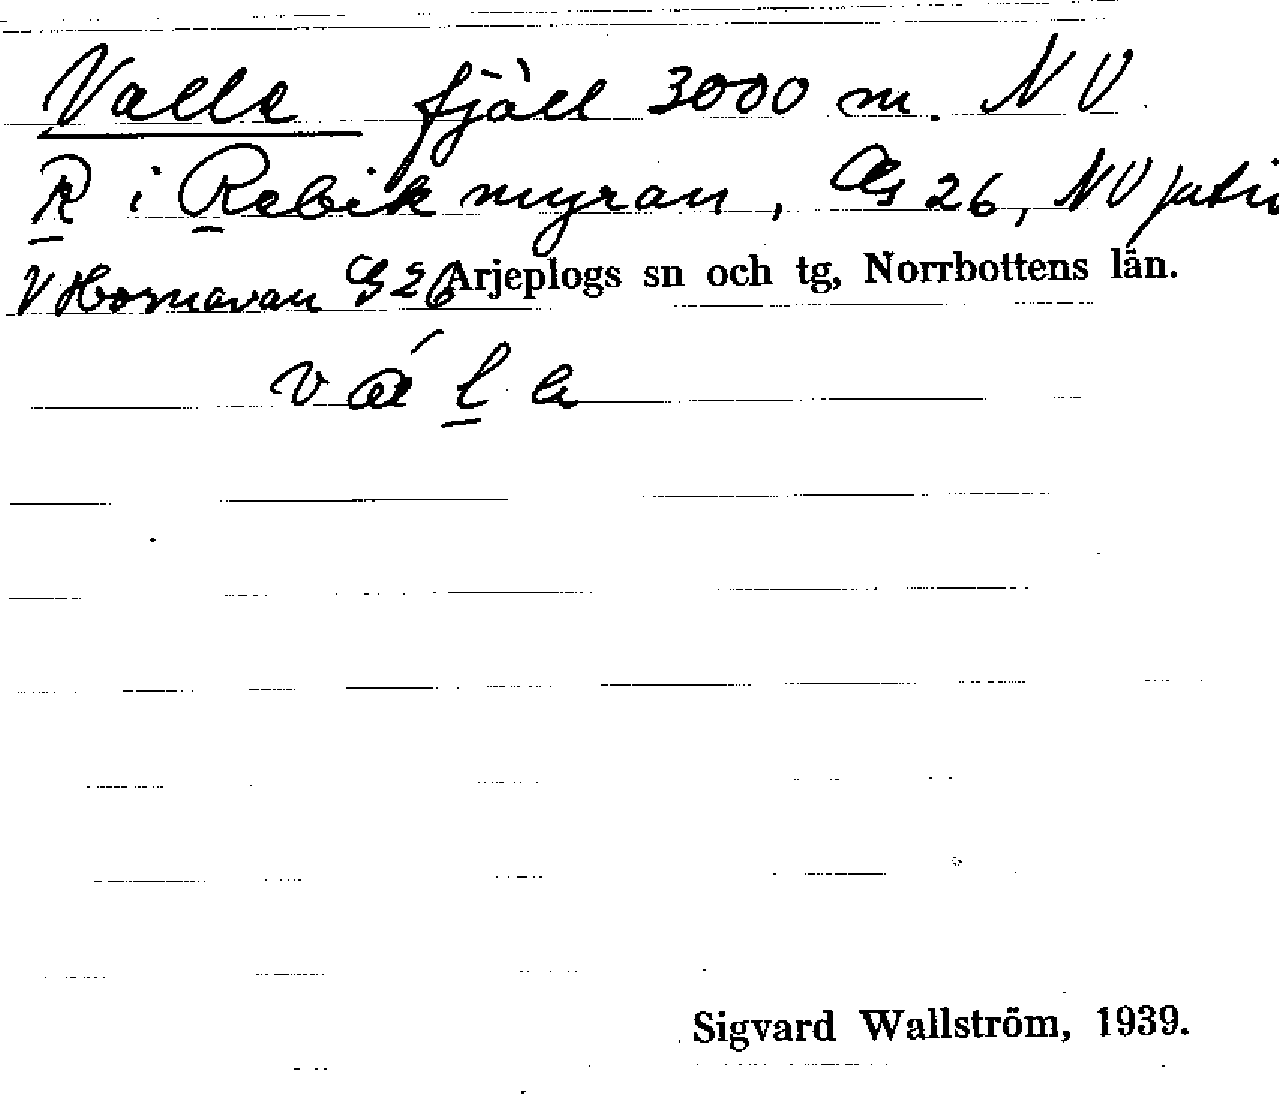 Valle fjäll 3000 m. NV
R i Rebikmyran, Gs 26, NV
V Hornavan G 26 Arjeplogs sn och tg, Norrbottens län.
vála
Sigvard Wallström, 1939.